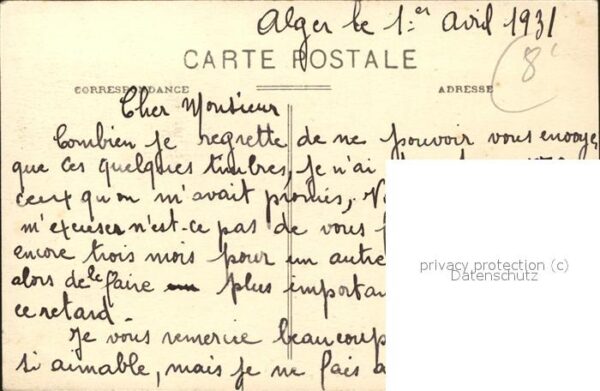 Alger le 1er avril 1931
CARTE POSTALE
8
CORRESPONDANCE
ADRESSE
Cher Monsieur
Combien je regrette de ne pouvoir vous envoye
que ces quelques timbres, je n'ai
ceux qu'on m'avait promis,
m'excuser n'est-ce pas de vous
encore trois mois pour un autre
alors de le faire plus importan
ce retard.
Je vous remercie beaucoup
si aimable, mais je ne fais
privacy protection (c)
Datenschutz